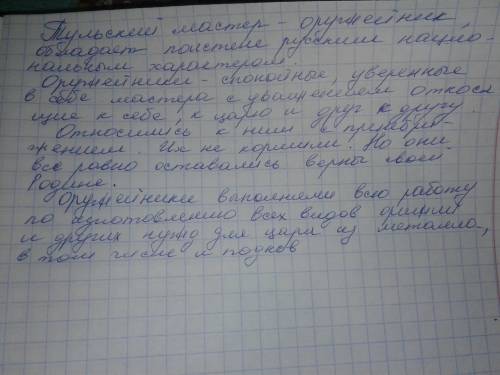 Тульский мастер - оружейник
обладает поистене русским нацио-
нальным характером.
Оружейники - спокойные, уверенные
в себе мастера с уважением относя
щие к себе, к царю и друг к другу.
Относились к ним с пренебре-
жением. Их не кормили. Но они
все равно оставались верны своей
Родине.
Оружейники выполняли всю работу
по изготовлению всех видов оружий
и других нужд для царя из металла,
в том числе и подков